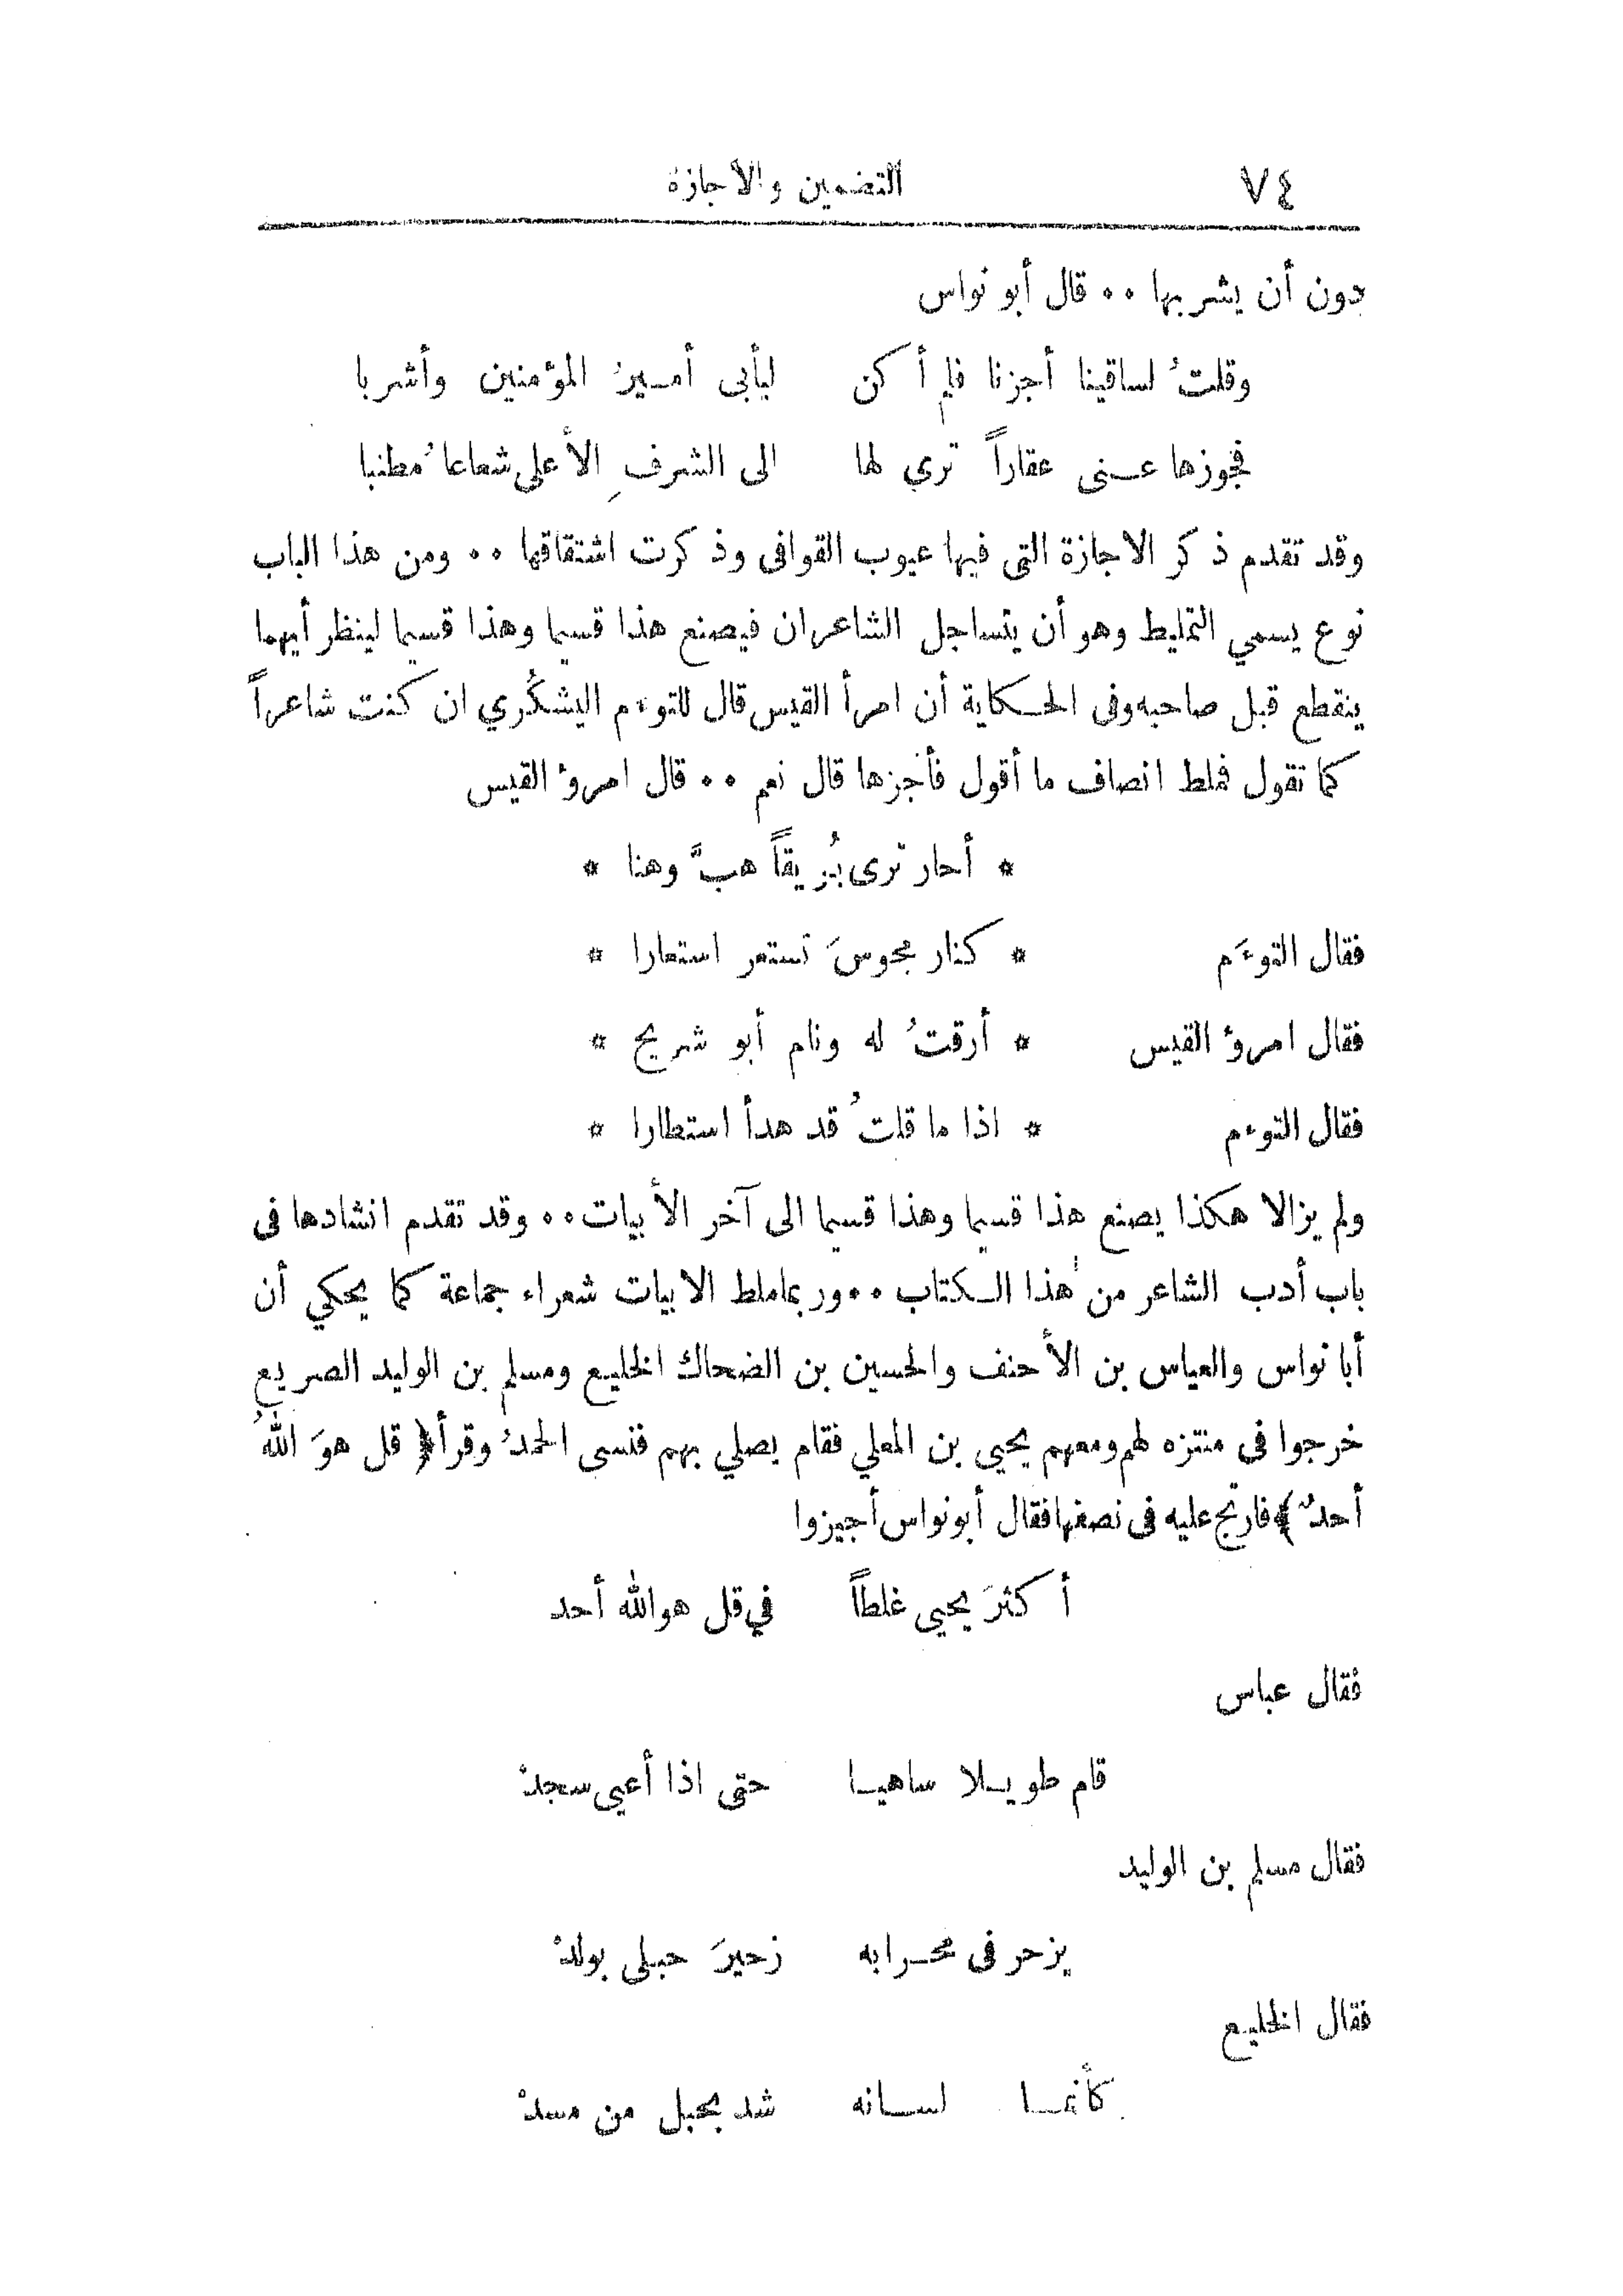 ٧٤ التضمين والاجازة
دون أن يشربها ٠٠ قال أبو نواس
وقلتُ لساقينا أجزنا فلم أكن ليأبى أمـيرُ المؤمنين وأشربا
فجوزها عـنى عقاراً ترى لها الى الشرفِ الأعلى شعاعاً مُطنبا
وقد تقدم ذكر الاجازة التى فيها عيوب القوافى وذكرت اشتقاقها ٠٠ ومن هذا الباب
نوع يسمي التمليط وهو أن يتساجل الشاعران فيصنع هذا قسيما وهذا قسيما لينظر أيهما
ينقطع قبل صاحبه وفى الحكاية أن امرأ القيس قال للتوءم اليشكُري ان كنت شاعراً
كما تقول فملط انصاف ما أقول فأجزها قال نعم ٠٠ قال امرؤ القيس
* أحار ترى بُرَيقاً هبَّ وهنا *
فقال التوءَم * كنار مجوسَ تستعر استعارا *
فقال امرؤ القيس * أرقتُ له ونام أبو شريح *
فقال التوءم * اذا ما قلتُ قد هدأ استطارا *
ولم يزالا هكذا يصنع هذا قسيما وهذا قسيما الى آخر الأبيات ٠٠ وقد تقدم انشادها فى
باب أدب الشاعر من هذا الكتاب ٠٠ وربماملط الابيات شعراء جماعة كما يحكي أن
أبا نواس والعباس بن الأحنف والحسين بن الضحاك الخليع ومسلم بن الوليد الصريع
خرجوا فى منتزه لهم ومعهم يحيى بن المعلي فقام يصلي بهم فنسى الحمدُ وقرأ ﴿ قل هوَ اللهُ
أحدٌ ﴾ فارتج عليه فى نصفها فقال أبو نواس أجيزوا
أكثرَ يحيى غلطاً في قل هو الله أحد
فقال عباس
قام طويـلا ساهيـا حتى اذا أعيى سجدْ
فقال مسلم بن الوليد
يزحر فى محـرابه زحيرَ حبلى بولدْ
فقال الخليع
كأنمـا لسـانه شد بحبل من مسدْ